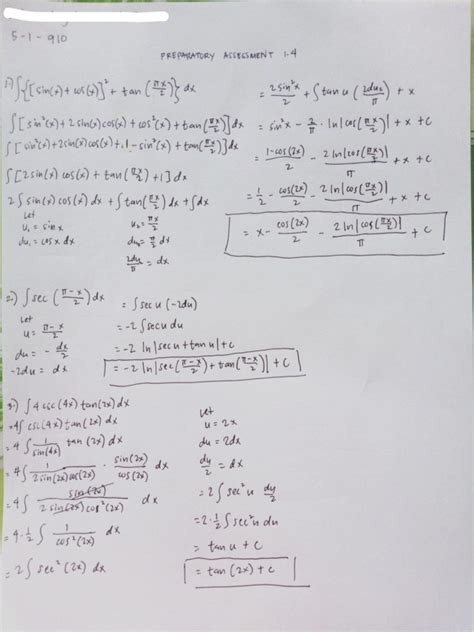 5-1-910
PREPARATORY ASSESSMENT 1.4
1) ∫{[sin(x) + cos(x)]² + tan(πx/2)} dx
∫[sin²(x) + 2sin(x)cos(x) + cos²(x) + tan(πx/2)] dx
∫[sin²(x) + 2sin(x)cos(x) + 1 - sin²(x) + tan(πx/2)] dx
∫[2sin(x)cos(x) + tan(πx/2) + 1] dx
2∫sin(x)cos(x) dx + ∫tan(πx/2) dx + ∫dx
Let
u₁ = sin x
du₁ = cos x dx
u₂ = πx/2
du₂ = π/2 dx
2du₂/π = dx
= 2sin²x/2 + ∫tan u (2du₂/π) + x
= sin²x - 2/π · ln|cos(πx/2)| + x + c
= 1-cos(2x)/2 - 2ln|cos(πx/2)|/π + x + c
= 1/2 - cos(2x)/2 - 2ln|cos(πx/2)|/π + x + c
= x - cos(2x)/2 - 2ln|cos(πx/2)|/π + c
2.) ∫sec(π-x/2) dx
Let
u = π-x/2
du = - dx/2
-2du = dx
= ∫sec u (-2du)
= -2∫sec u du
= -2 ln|sec u + tan u| + c
= -2 ln|sec(π-x/2) + tan(π-x/2)| + c
3) ∫4 csc(4x) tan(2x) dx
= 4∫csc(4x) tan(2x) dx
= 4∫ 1/sin(4x) tan(2x) dx
= 4∫ 1/2sin(2x)cos(2x) · sin(2x)/cos(2x) dx
= 4∫ sin(2x)/2sin(2x)cos²(2x) dx
= 4·1/2 ∫ 1/cos²(2x) dx
= 2∫sec²(2x) dx
Let
u = 2x
du = 2dx
dy/2 = dx
= 2∫sec²u dy/2
= 2·1/2∫sec²u du
= tan u + c
= tan(2x) + c